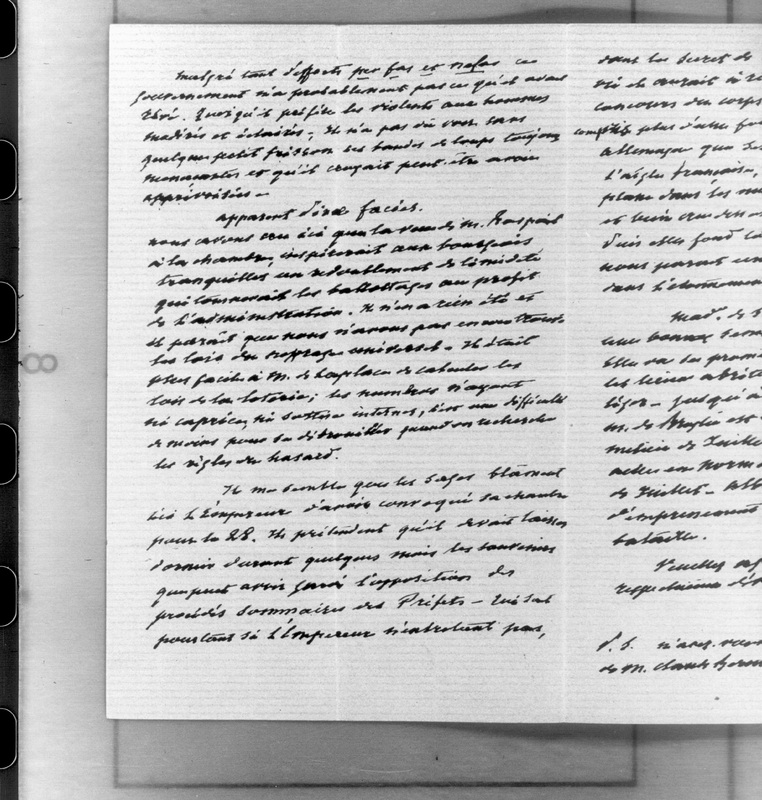 malgré tant d'efforts per fas et nefas ce
gouvernement n'a probablement pas ce qu'il avait
rêvé. Quoiqu'il préfère les violents aux hommes
modérés et éclairés, Il n'a pas dû voir sans
quelque petit frisson ces bandes de loups toujours
menaçantes et qu'il croyait peut-être avoir
apprivoisées -
apparent diræ facies.
nous avons cru ici que la vue de m. Raspail
à la chambre, inspirerait aux bourgeois
tranquilles un redoublement de timidité
qui tournerait les ballottages au profit
de l'administration. Il n'en a rien été et
il paraît que nous n'avons pas encore trouvé
les lois du suffrage universel - Il était
plus facile à M. de Laplace de calculer les
lois de la loterie; les numéros n'ayant
ni caprice, ni sottise internes, c'est une difficulté
de moins pour se débrouiller quand on recherche
les règles du hasard.
Il me semble que les sages blâment
ici L'Empereur d'avoir convoqué sa chambre
pour le 28. Ils prétendent qu'il devait laisser
dormir durant quelques mois les souvenirs
que peut avoir gardé l'opposition des
procédés sommaires des Préfets - Qui sait
pourtant si L'Empereur n'entretient pas,
dans le secret de
concours du corps
plus d'une
allemagne que
L'aigle française,
plane dans les
et bien
nous parait
dans l'étonnement
mad. de
Elle va se
léger - jusqu'à
m. de Broglie est
milieu de Juillet
de Juillet -
d'empressement
bataille.
Veuillez
respectueux
P. S. n'avez-vous
de M. Claude